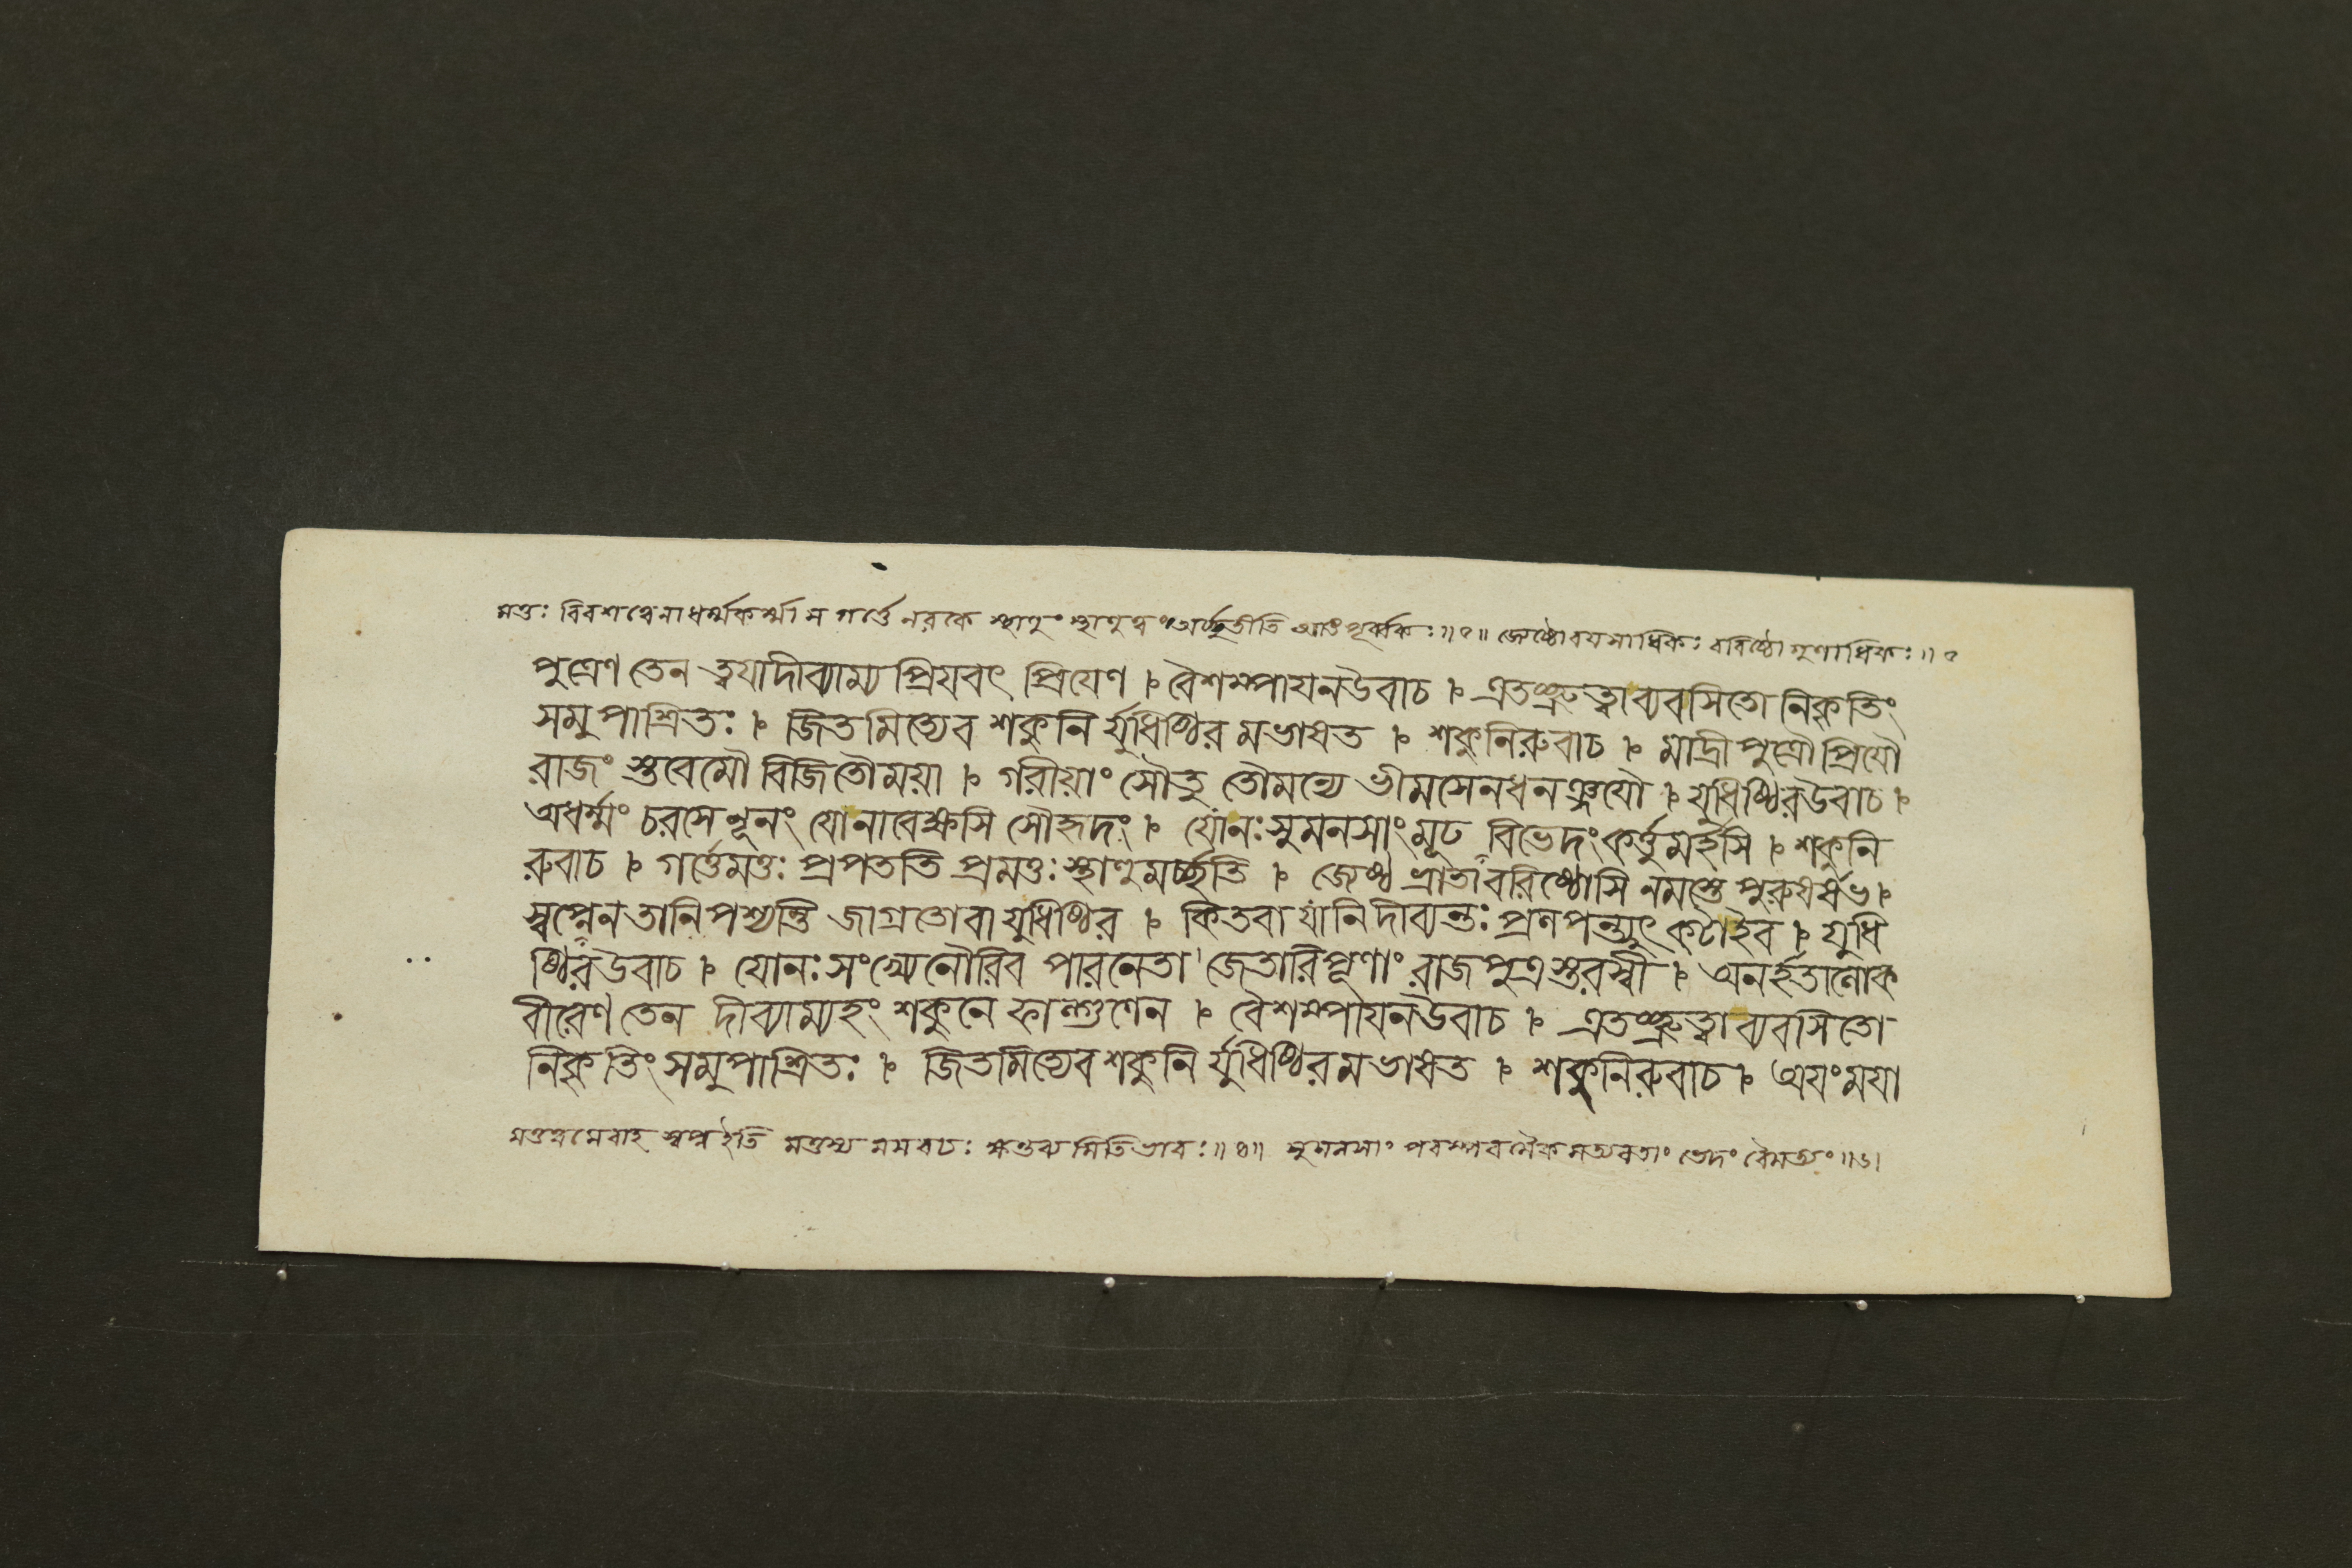 মত্তঃ বিবশত্বেনাধর্ম্মকর্ম্মা স গর্ত্তে নরকে স্থাণুং স্থাণুত্বং পূর্ব্বকঃ॥৫॥ জ্যেষ্ঠো বয়সাধিকঃ বরিষ্ঠো গুণাধিকঃ॥৫
পুত্রেণ তেন ত্বযা দীব্যাম্য প্রিযবৎ প্রিযেণ । বৈশম্পাযনউবাচ । এতচ্ছ্রুত্বা ব্যবসিতো নিকৃতিং
সমুপাশ্রিতঃ । জিতমিত্যেব শকুনি র্যুধিষ্ঠির মভাষত । শকুনিরুবাচ । মাদ্রীপুত্রৌ প্রিযৌ
রাজং স্তবেমৌ বিজিতৌ ময়া । গরীয়াং সৌতু তৌমন্যে ভীমসেনধনঞ্জযৌ । যুধিষ্ঠিরউবাচ ।
অধর্ম্মং চরসে নূনং যোনাবেক্ষসি সৌহৃদং । যোনঃ সুমনসাং মূঢ বিভেদং কর্ত্তুমর্হসি । শকুনি
রুবাচ । গর্ত্তেমত্তঃ প্রপততি প্রমত্তঃ স্থাণুমর্চ্ছতি । জ্যেষ্ঠ ভ্রাতা বরিষ্ঠোসি নমস্তে পুরুষর্ষভ ।
স্বপ্নেন তানি পশ্যন্তি জাগ্রতোবা যুধিষ্ঠির । কিতবা যানি দীব্যন্তঃ প্রলপন্ত্যুৎকটাইব । যুধি
ষ্ঠিরউবাচ । যোনঃ সংখ্যে নৌরিব পারনেতা জেতারিপূণাং রাজপুত্রস্তরস্বী । অনর্হতা লোক
বীরেণ তেন দীব্যাম্যহং শকুনে ফাল্গুণেন । বৈশম্পাযনউবাচ । এতচ্ছ্রুত্বা ব্যবসিতো
নিকৃতিং সমুপাশ্রিতঃ । জিতমিত্যেব শকুনি র্যুধিষ্ঠিরমভাষত । শকুনিরুবাচ । অযং মযা
মত্তত্বমেবাহ স্বপ্নইতি মত্তস্য মম বচঃ ক্ষন্তব্যমিতিভাবঃ॥৪॥ সুমনসাং পরস্পর ভেদং বৈমত্যং॥৬।